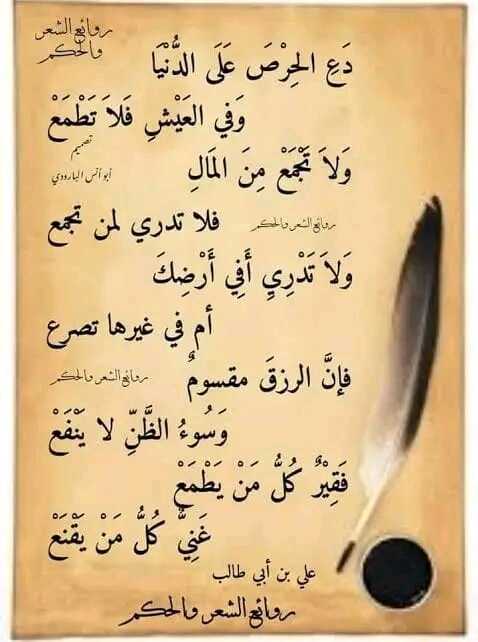 روائع الشعر
والحكم
دَعِ الحِرْصَ عَلَى الدُّنْيَا
وَفي العَيْشِ فَلاَ تَطْمَعْ
تصميم
أبو أنس البارودي
وَلاَ تَجْمَعْ مِنَ المَالِ
فلا تدري لمن تجمع
روائع الشعر والحكم
وَلاَ تَدْرِي أَفِي أَرْضِكَ
أم في غيرها تصرع
فإنَّ الرزقَ مقسومٌ
روائع الشعر والحكم
وَسُوءُ الظَّنِّ لا يَنْفَعْ
فَقِيْرٌ كُلُّ مَنْ يَطْمَعْ
غَنِيٌّ كُلُّ مَنْ يَقْنَعْ
علي بن أبي طالب
روائع الشعر والحكم